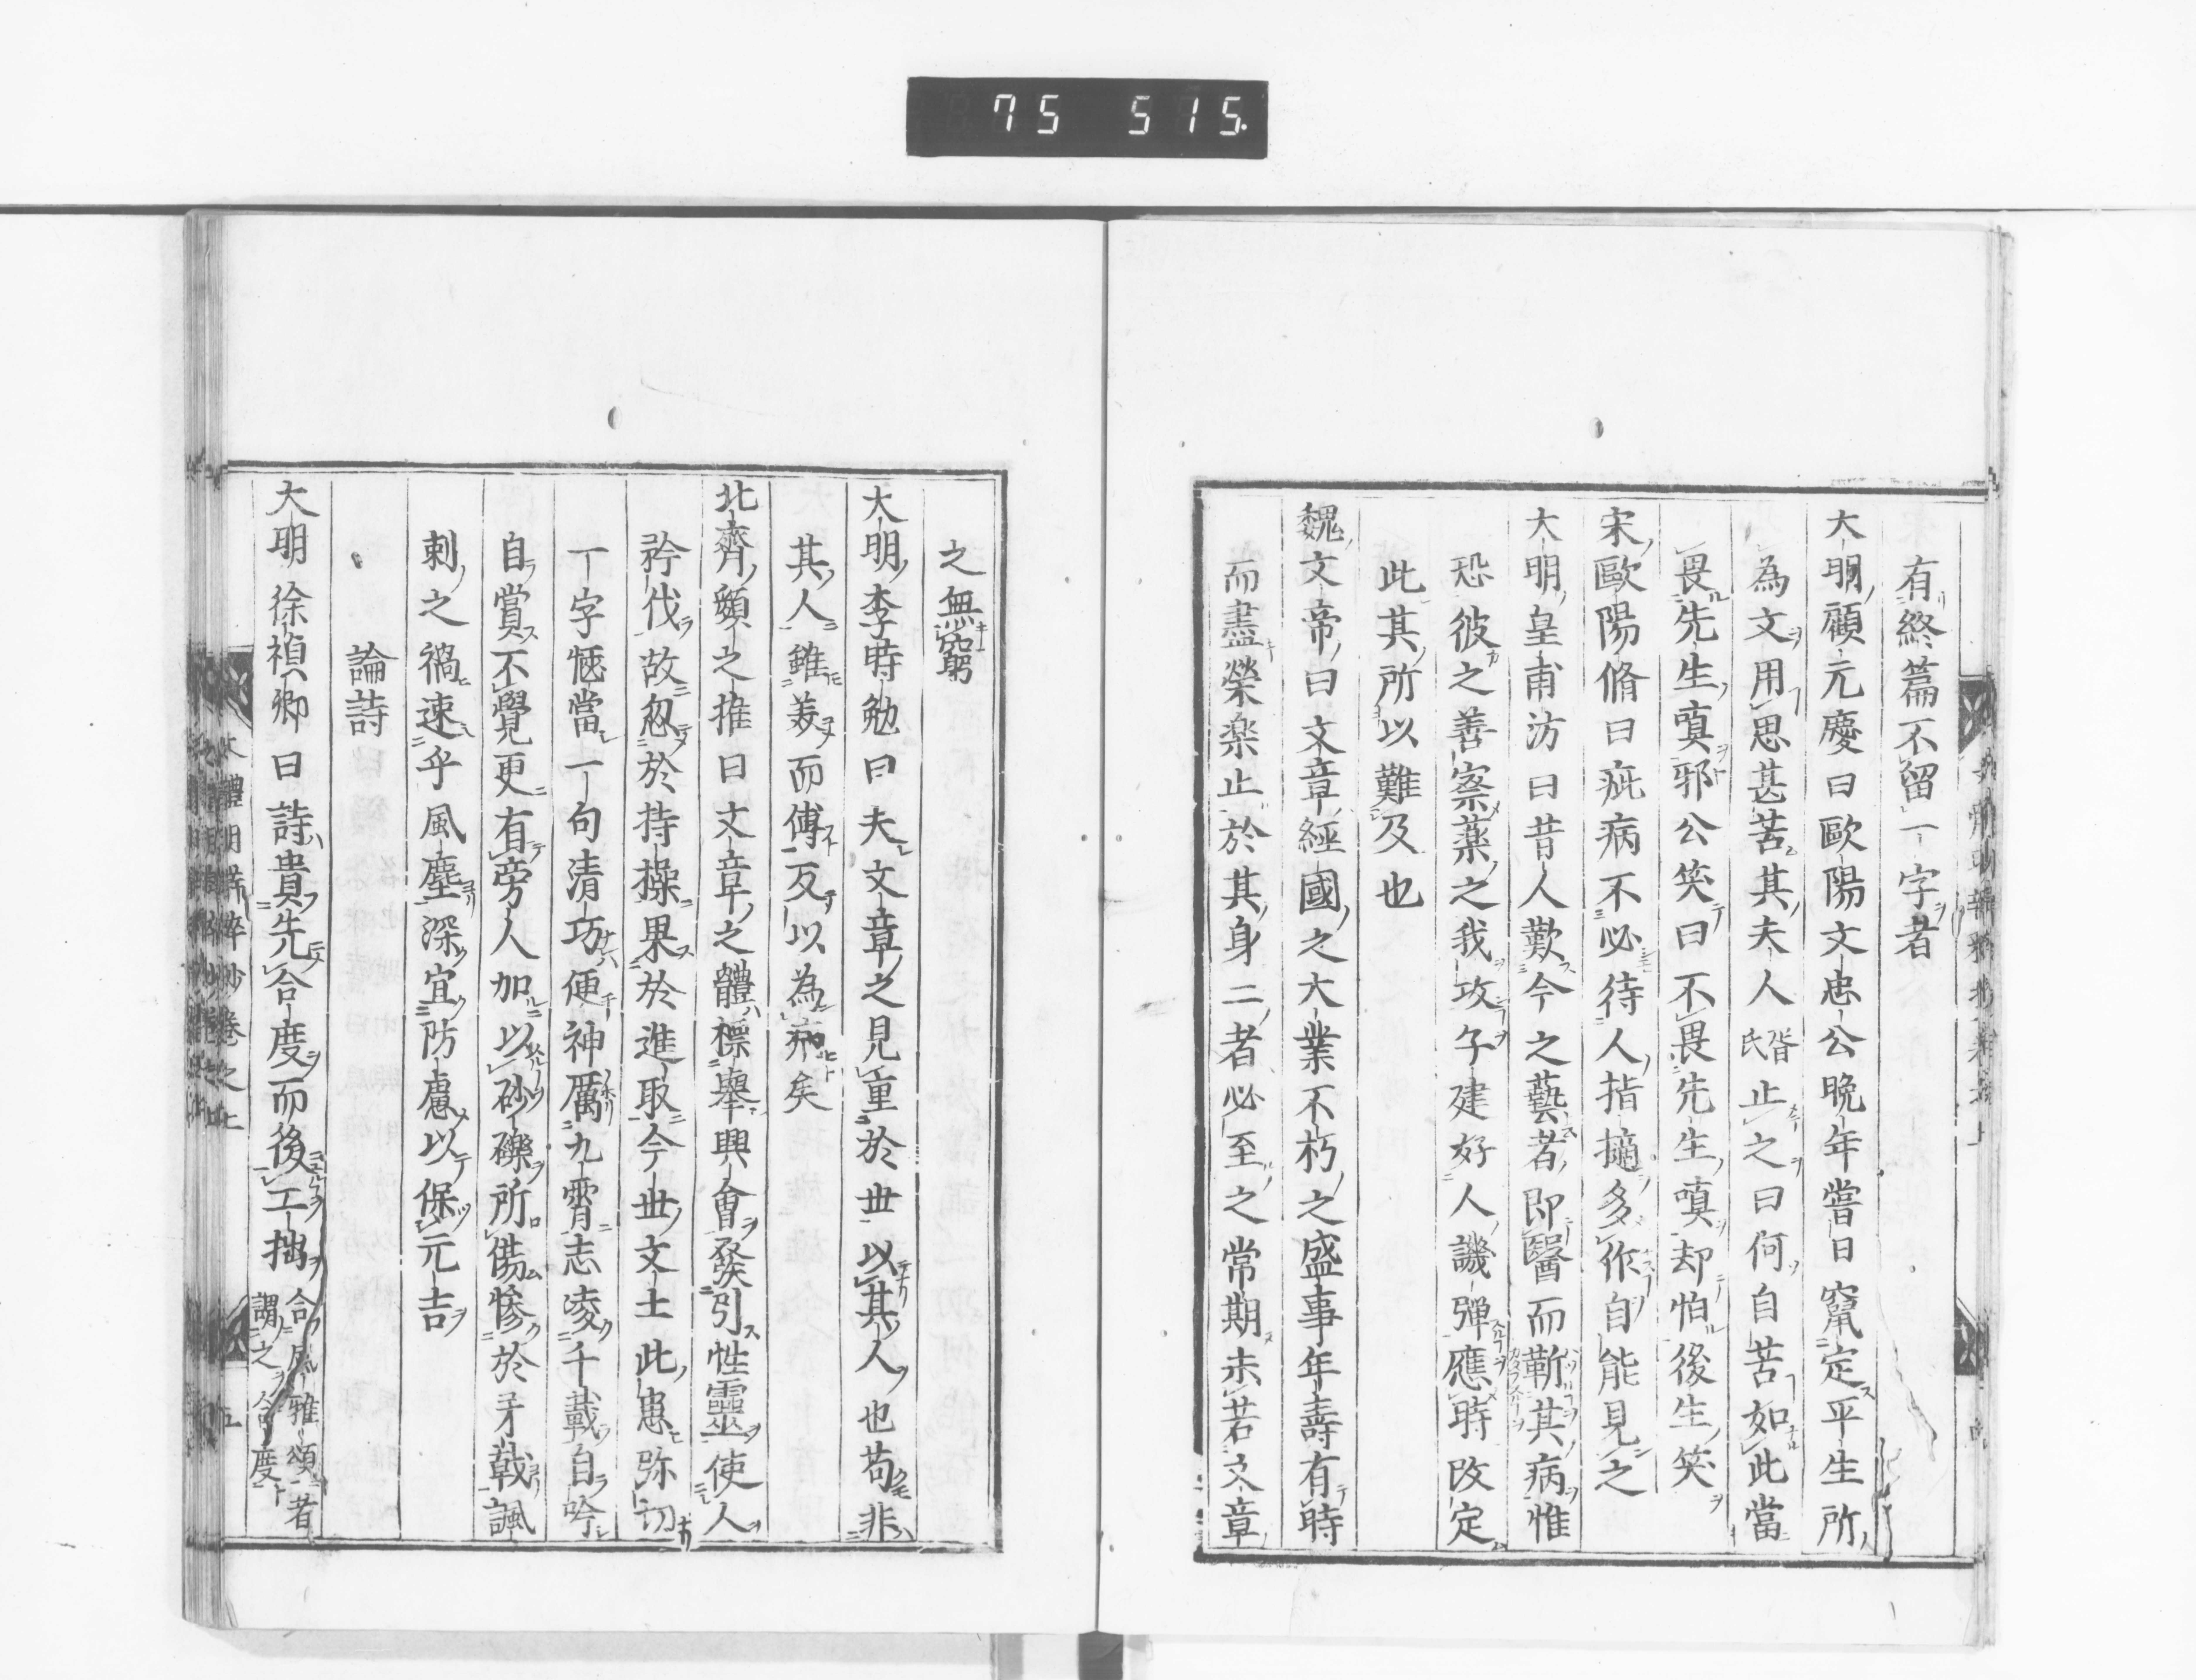 75 515.
有終篇不留一字者
大明顧元慶曰歐陽文忠公晚年嘗日竄定平生所
為文用思甚苦其夫人胥氏止之曰何自苦如此當
畏先生嗔邪公笑曰不畏先生嗔却怕後生笑
宋歐陽脩曰疵病不必待人指摘多作自能見之
大明皇甫汸曰昔人歎今之藝者即醫而靳其病惟
恐彼之善察藥之我攻子建好人譏彈應時改定
此其所以難及也
魏文帝曰文章經國之大業不朽之盛事年壽有時
而盡榮楽止於其身二者必至之常期未若文章
之無窮
大明李時勉曰夫文章之見重於世以其人也苟非
其人雖美而傳反以為病矣
北齊顔之推曰文章之體標舉興會發引性靈使人
矜伐故忽於持操果於進取今世文士此患弥切
一字愜當一句清巧便神厲九霄志凌千載自吟
自賞不覺更有旁人加以砂礫所傷慘於矛戟諷
刺之禍速乎風塵深宜防慮以保元吉
論詩
大明徐禎卿曰詩貴先合度而後工拙合風雅頌者
謂之合度
文體明辨粹抄卷之上
五